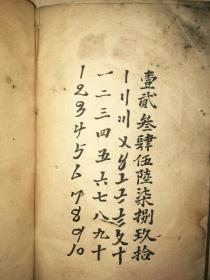 壹貳叁肆伍陸柒捌玖拾
〡〢〣〤〥〦〧〨〩十
一二三四五六七八九十
1 2 3 4 5 6 7 8 9 10